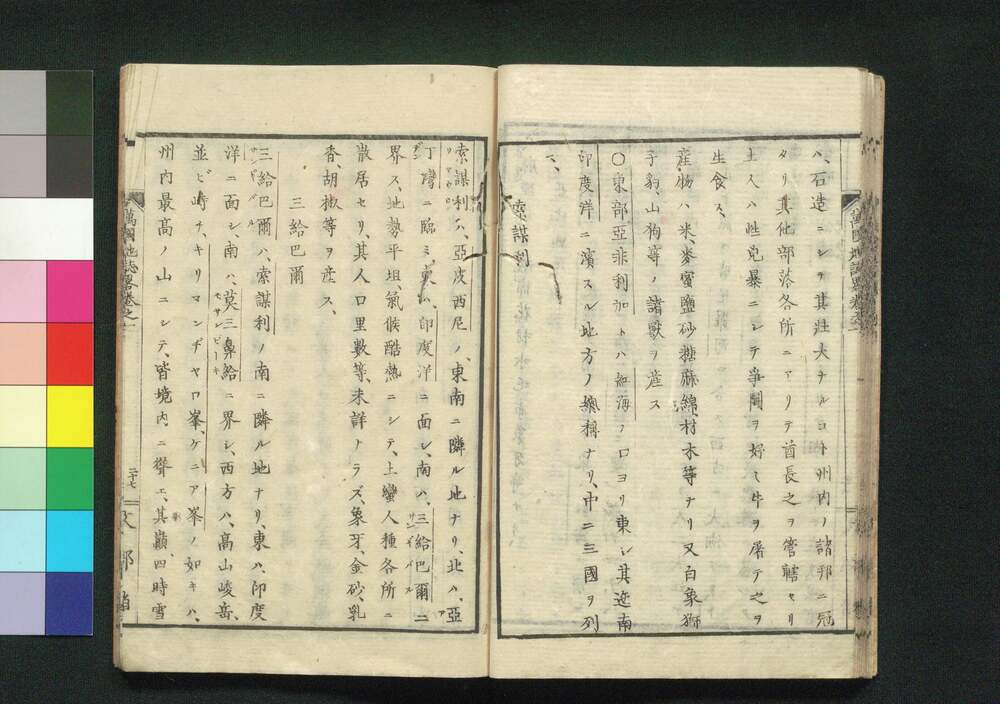 ハ、石造ニシヲ其壮大ナルコト州内ノ諸邦ニ冠
タリ其他部落各所ニアリテ酋長之ヲ管轄セリ
土人ハ性兇暴ニシテ争鬪ヲ好ミ牛ヲ屠テ之ヲ
生食ス、
産物ハ米、麥蜜鹽砂糖麻綿、材木等ナリ又白象獅
子豹、山狗等ノ諸獸ヲ産ス
〇東部亞非利加トハ紅海ノ口ヨリ東シ其迤南
印度洋ニ濱スル地方ノ總稱ナリ、中ニ三國ヲ列
ス、
索謀利
索謀利ハ、亞皮西尼ノ、東南ニ隣ル地ナリ、北ハ、亞
丁灣ニ臨ミ、東ハ、印度洋ニ面シ、南ハ、三給巴爾ニ
界ス、地勢平坦、氣候酷熱ニシテ、土蠻人種各所ニ
散居セリ、其人口里數等、未詳ナラズ、象牙、金砂、乳
香、胡椒等ヲ産ス、
三給巴爾
三給巴爾ハ、索謀利ノ南ニ隣ル地ナリ、東ハ、印度
洋ニ面シ、南ハ、莫三鼻給ニ界シ、西方ハ、高山峻岳、
並ビ峙チ、キリマンヂヤロ峯、ケニア峯ノ如キハ、
州内最高ノ山ニシテ、皆境内ニ聳エ、其巓四時雪
萬國地誌畧卷之二
二十七
文部省